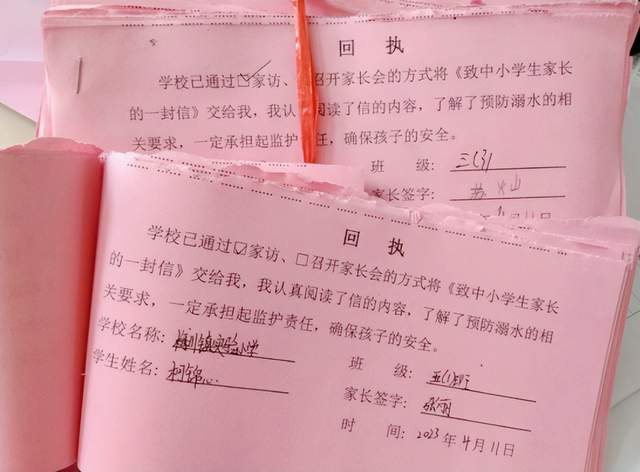 回 执
学校已通过☑家访、□召开家长会的方式将《致中小学生家长
的一封信》交给我，我认 阅读了信的内容，了解了预防溺水的相
关要求，一定承担起监护 任，确保孩子的安全。
班 级：三(3)
家长签字： 山
月11日
回 执
学校已通过☑家访、□召开家长会的方式将《致中小学生家长
的一封信》交给我，我认真阅读了信的内容，了解了预防溺水的相
关要求，一定承担起监护责任，确保孩子的安全。
学校名称：梅川镇实验小学
班 级：五(1)班
学生姓名：柯锦
家长签字：张丽
时 间：2023年4月11日